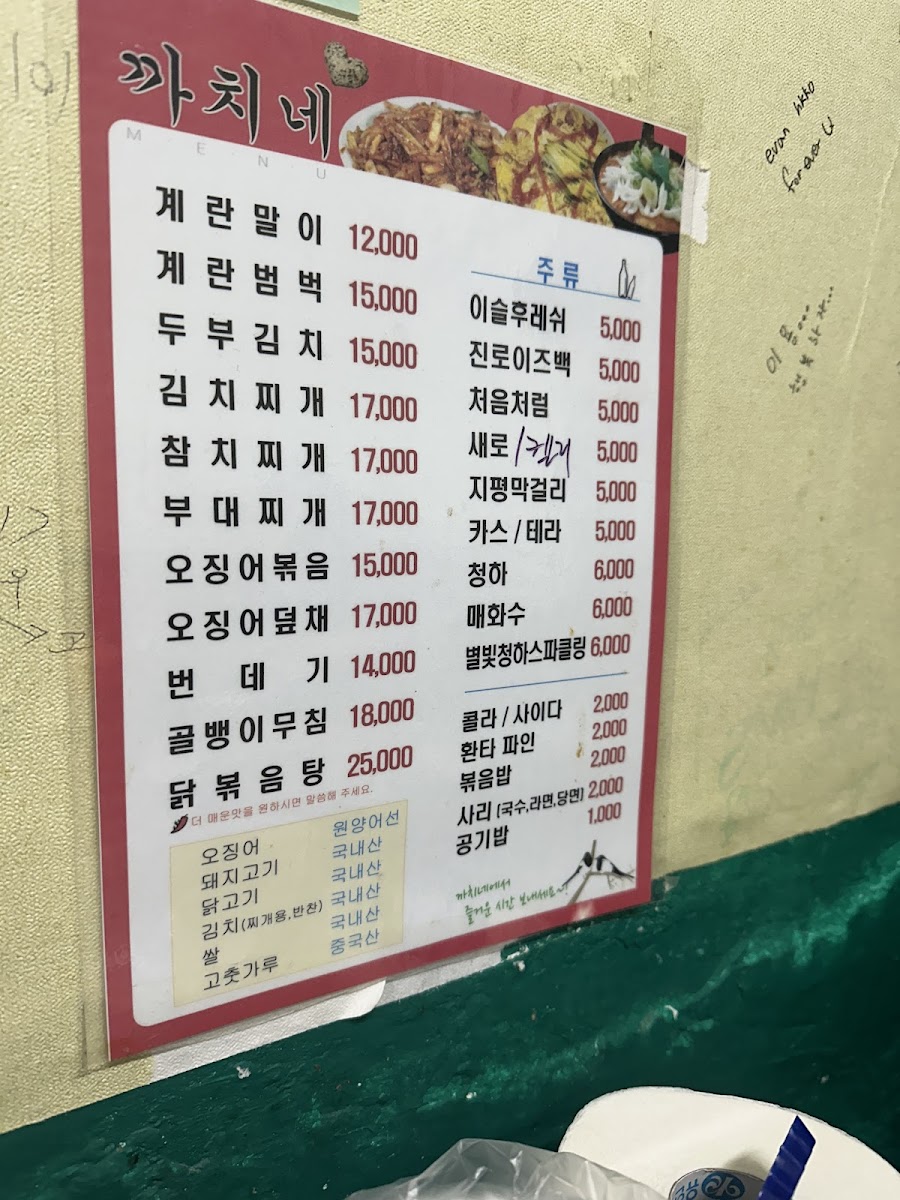 까치네
MENU
계란말이 12,000
계란범벅 15,000
두부김치 15,000
김치찌개 17,000
참치찌개 17,000
부대찌개 17,000
오징어볶음 15,000
오징어덮채 17,000
번데기 14,000
골뱅이무침 18,000
닭볶음탕 25,000
더 매운맛을 원하시면 말씀해 주세요.
오징어 원양어선
돼지고기 국내산
닭고기 국내산
김치(찌개용,반찬) 국내산
쌀 국내산
고춧가루 중국산
주류
이슬후레쉬 5,000
진로이즈백 5,000
처음처럼 5,000
새로 / 켈리 5,000
지평막걸리 5,000
카스 / 테라 5,000
청하 6,000
매화수 6,000
별빛청하스파클링 6,000
콜라 / 사이다 2,000
환타 파인 2,000
볶음밥 2,000
사리 (국수,라면,당면) 2,000
공기밥 1,000
까치네에서
즐거운 시간 보내세요~!
evan
forever